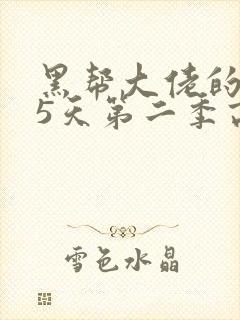 黑帮大佬的
5天第二季
雪色水晶